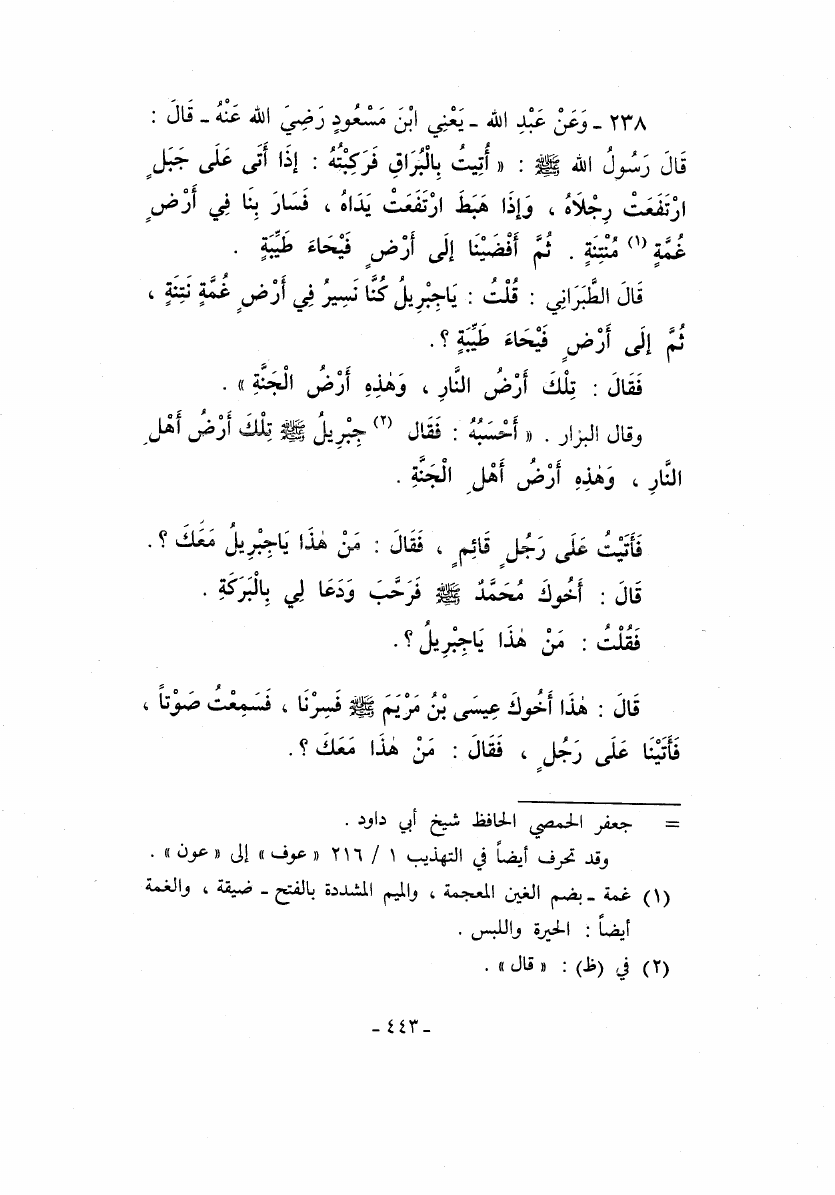 ٢٣٨ ـ وَعَنْ عَبْدِ الله ـ يَعْنِي ابْنَ مَسْعُودٍ رَضِيَ الله عَنْهُ ـ قَالَ :
قَالَ رَسُولُ الله ﷺ : « أُتِيتُ بِالْبُرَاقِ فَرَكِبْتُهُ : إذَا أَتَى عَلَى جَبَلٍ
ارْتَفَعَتْ رِجْلَاهُ ، وَإذَا هَبَطَ ارْتَفَعَتْ يَدَاهُ ، فَسَارَ بِنَا فِي أَرْضٍ
غُمَّةٍ (١) مُنْتِنَةٍ . ثُمَّ أَفْضَيْنَا إلَى أَرْضٍ فَيْحَاءَ طَيِّبَةٍ .
قَالَ الطَّبَرَانِي : قُلْتُ : يَاجِبْرِيلُ كُنَّا نَسِيرُ فِي أَرْضٍ غُمَّةٍ نَتِنَةٍ ،
ثُمَّ إلَى أَرْضٍ فَيْحَاءَ طَيِّبَةٍ ؟ .
فَقَالَ : تِلْكَ أَرْضُ النَّارِ ، وَهٰذِهِ أَرْضُ الْجَنَّةِ » .
وقال البزار . « أَحْسَبُهُ : فَقَال (٢) جِبْرِيلُ ﷺ تِلْكَ أَرْضُ أَهْلِ
النَّارِ ، وَهٰذِهِ أَرْضُ أَهْلِ الْجَنَّةِ .
فَأَتَيْتُ عَلَى رَجُلٍ قَائِمٍ ، فَقَالَ : مَنْ هٰذَا يَاجِبْرِيلُ مَعَكَ ؟ .
قَالَ : أَخُوكَ مُحَمَّدٌ ﷺ فَرَحَّبَ وَدَعَا لِي بِالْبَرَكَةِ .
فَقُلْتُ : مَنْ هٰذَا يَاجِبْرِيلُ ؟ .
قَالَ : هٰذَا أَخُوكَ عِيسَى بْنُ مَرْيَمَ ﷺ فَسِرْنَا ، فَسَمِعْتُ صَوْتاً ،
فَأَتَيْنَا عَلَى رَجُلٍ ، فَقَالَ : مَنْ هٰذَا مَعَكَ ؟ .
= جعفر الحمصي الحافظ شيخ أبي داود .
وقد تحرف أيضاً في التهذيب ١ / ٢١٦ « عوف » إلى « عون » .
(١) غمة ـ بضم الغين المعجمة ، والميم المشددة بالفتح ـ ضيقة ، والغمة
أيضاً : الحيرة واللبس .
(٢) في (ظ) : « قال » .
ـ ٤٤٣ ـ